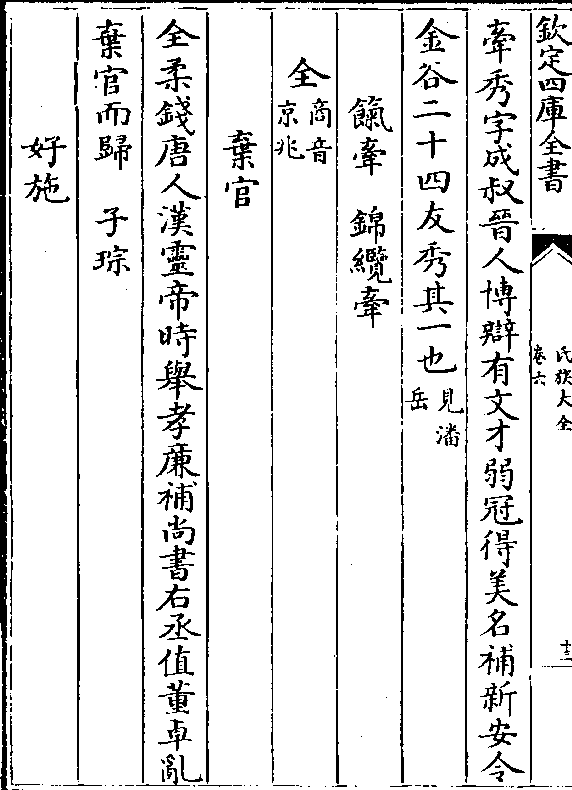 欽定四庫全書
氏族大全
卷六
十三
牽秀字成叔晉人博辯有文才弱冠得美名補新安令
金谷二十四友秀其一也見潘岳
餼牽　錦纜牽
全商音京兆
棄官
全柔錢唐人漢靈帝時舉孝廉補尚書右丞值董卓亂
棄官而歸　子琮
好施